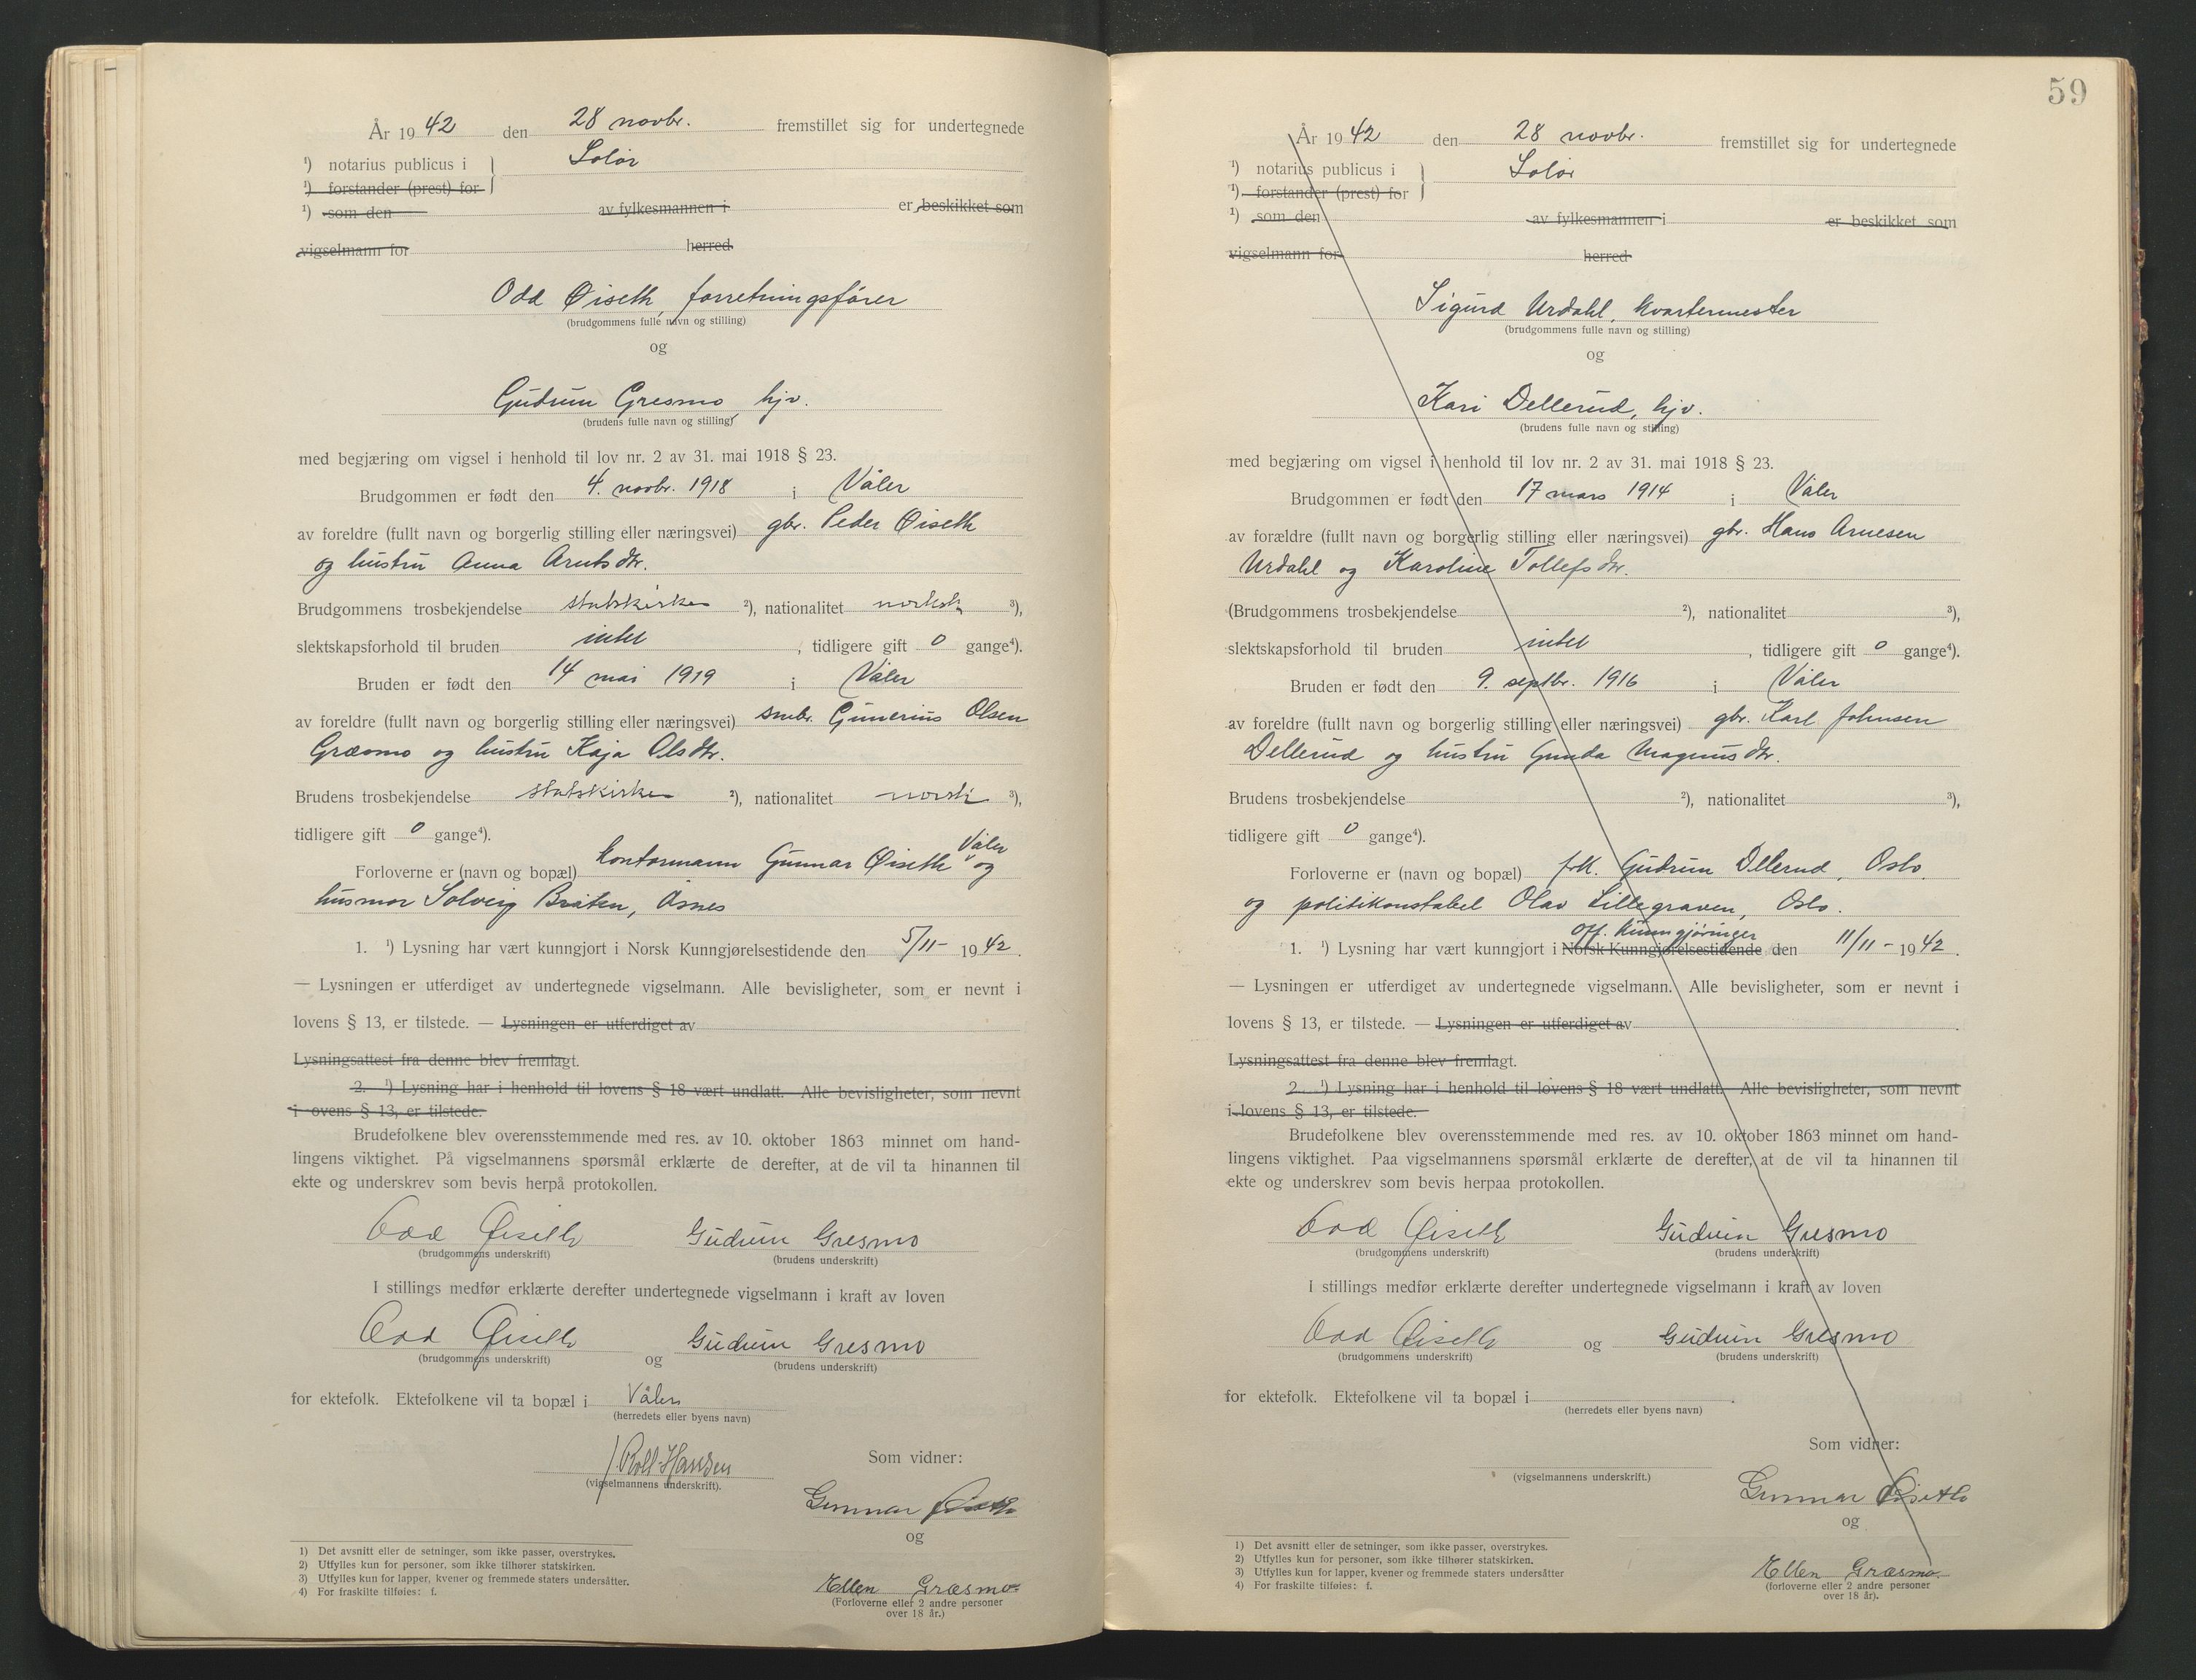 År 1942 den 28 novbr. fremstillet sig for undertegnede
¹) notarius publicus i Solør
¹) forstander (prest) for
¹) som den av fylkesmannen i er beskikket som
vigselmann for herred
Odd Øiseth, forretningsfører
(brudgommens fulle navn og stilling)
og
Gudrun Gresmo hjv.
(brudens fulle navn og stilling)
med begjæring om vigsel i henhold til lov nr. 2 av 31. mai 1918 § 23.
Brudgommen er født den 4. novbr. 1918 i Våler
av foreldre (fullt navn og borgerlig stilling eller næringsvei) gbr. Peder Øiseth
og hustru Anna Arntsdtr.
Brudgommens trosbekjendelse statskirken ²), nationalitet norsk ³),
slektskapsforhold til bruden intet, tidligere gift 0 gange⁴).
Bruden er født den 14 mai 1919 i Våler
av foreldre (fullt navn og borgerlig stilling eller næringsvei) smbr. Gunerius Olsen
Græsmo og hustru Kaja Olsdtr.
Brudens trosbekjendelse statskirken ²), nationalitet norsk ³),
tidligere gift 0 gange⁴).
Våler
Forloverne er (navn og bopæl) kontormann Gunnar Øiseth og
husmor Solveig Bråten, Åsnes
1. ¹) Lysning har vært kunngjort i Norsk Kunngjørelsestidende den 5/11- 1942.
— Lysningen er utferdiget av undertegnede vigselmann. Alle bevisligheter, som er nevnt i
lovens § 13, er tilstede. — Lysningen er utferdiget av
Lysningsattest fra denne blev fremlagt.
2. ¹) Lysning har i henhold til lovens § 18 vært undlatt. Alle bevisligheter, som nevnt
i ovens § 13, er tilstede.
Brudefolkene blev overensstemmende med res. av 10. oktober 1863 minnet om hand-
lingens viktighet. På vigselmannens spørsmål erklærte de derefter, at de vil ta hinannen til
ekte og underskrev som bevis herpå protokollen.
Odd Øiseth Gudrun Gresmo
(brudgommens underskrift) (brudens underskrift)
I stillings medfør erklærte derefter undertegnede vigselmann i kraft av loven
Odd Øiseth og Gudrun Gresmo
(brudgommens underskrift) (brudens underskrift)
for ektefolk. Ektefolkene vil ta bopæl i Våler
(herredets eller byens navn)
J. Roll-Hansen Som vidner:
(vigselmannens underskrift).
Gunnar Øiseth
og
Ellen Græsmo
(Forloverne eller 2 andre personer
over 18 år.)
1) Det avsnitt eller de setninger, som ikke passer, overstrykes.
2) Utfylles kun for personer, som ikke tilhører statskirken.
3) Utfylles kun for lapper, kvener og fremmede staters undersåtter.
4) For fraskilte tilføies: f.
59
År 1942 den 28 novbr. fremstillet sig for undertegnede
¹) notarius publicus i Solør
¹) forstander (prest) for
¹) som den av fylkesmannen i er beskikket som
vigselmann for herred
Sigurd Urdahl, kvartermester
(brudgommens fulle navn og stilling)
og
Kari Dellerud, hjv.
(brudens fulle navn og stilling)
med begjæring om vigsel i henhold til lov nr. 2 av 31. mai 1918 § 23.
Brudgommen er født den 17 mars 1914 i Våler
av forældre (fullt navn og borgerlig stilling eller næringsvei) gbr. Hans Arnesen
Urdahl og Karoline Tollefsdtr.
(Brudgommens trosbekjendelse ²), nationalitet ³),
slektskapsforhold til bruden intet, tidligere gift 0 gange⁴).
Bruden er født den 9. septbr. 1916 i Våler
av foreldre (fullt navn og borgerlig stilling eller næringsvei) gbr. Karl Johnsen
Dellerud og hustru Gunda Magnusdtr.
Brudens trosbekjendelse ²), nationalitet ³),
tidligere gift 0 gange⁴).
Forloverne er (navn og bopæl) frk. Gudrun Dllerud, Oslo.
og politikonstabel Olav Lillegraven, Oslo.
Off. Kunngjøringer
1. ¹) Lysning har vært kunngjort i Norsk Kunngjørelsestidende den 11/11- 1942.
— Lysningen er utferdiget av undertegnede vigselmann. Alle bevisligheter, som er nevnt i
lovens § 13, er tilstede. — Lysningen er utferdiget av
Lysningsattest fra denne blev fremlagt.
2. ¹) Lysning har i henhold til lovens § 18 vært undlatt. Alle bevisligheter, som nevnt
i lovens § 13, er tilstede.
Brudefolkene blev overensstemmende med res. av 10. oktober 1863 minnet om hand-
lingens viktighet. Paa vigselmannens spørsmål erklærte de derefter, at de vil ta hinannen til
ekte og underskrev som bevis herpaa protokollen.
Odd Øiseth Gudrun Gresmo
(brudgommens underskrift) (brudens underskrift)
I stillings medfør erklærte derefter undertegnede vigselmann i kraft av loven
Odd Øiseth og Gudrun Gresmo
(brudgommens underskrift) (brudens underskrift)
for ektefolk. Ektefolkene vil ta bopæl i
(herredets eller byens navn)
Som vidner:
(vigselmannens underskrift.)
Gunnar Øiseth
og
Ellen Græsmo
(forloverne eller 2 andre personer
over 18 år).
1) Det avsnitt eller de setninger, som ikke passer, overstrykes.
2) Utfylles kun for personer, som ikke tilhører statskirken.
3) Utfylles kun for lapper, kvener og fremmede staters undersåtter
4) For fraskilte tilføies: f.